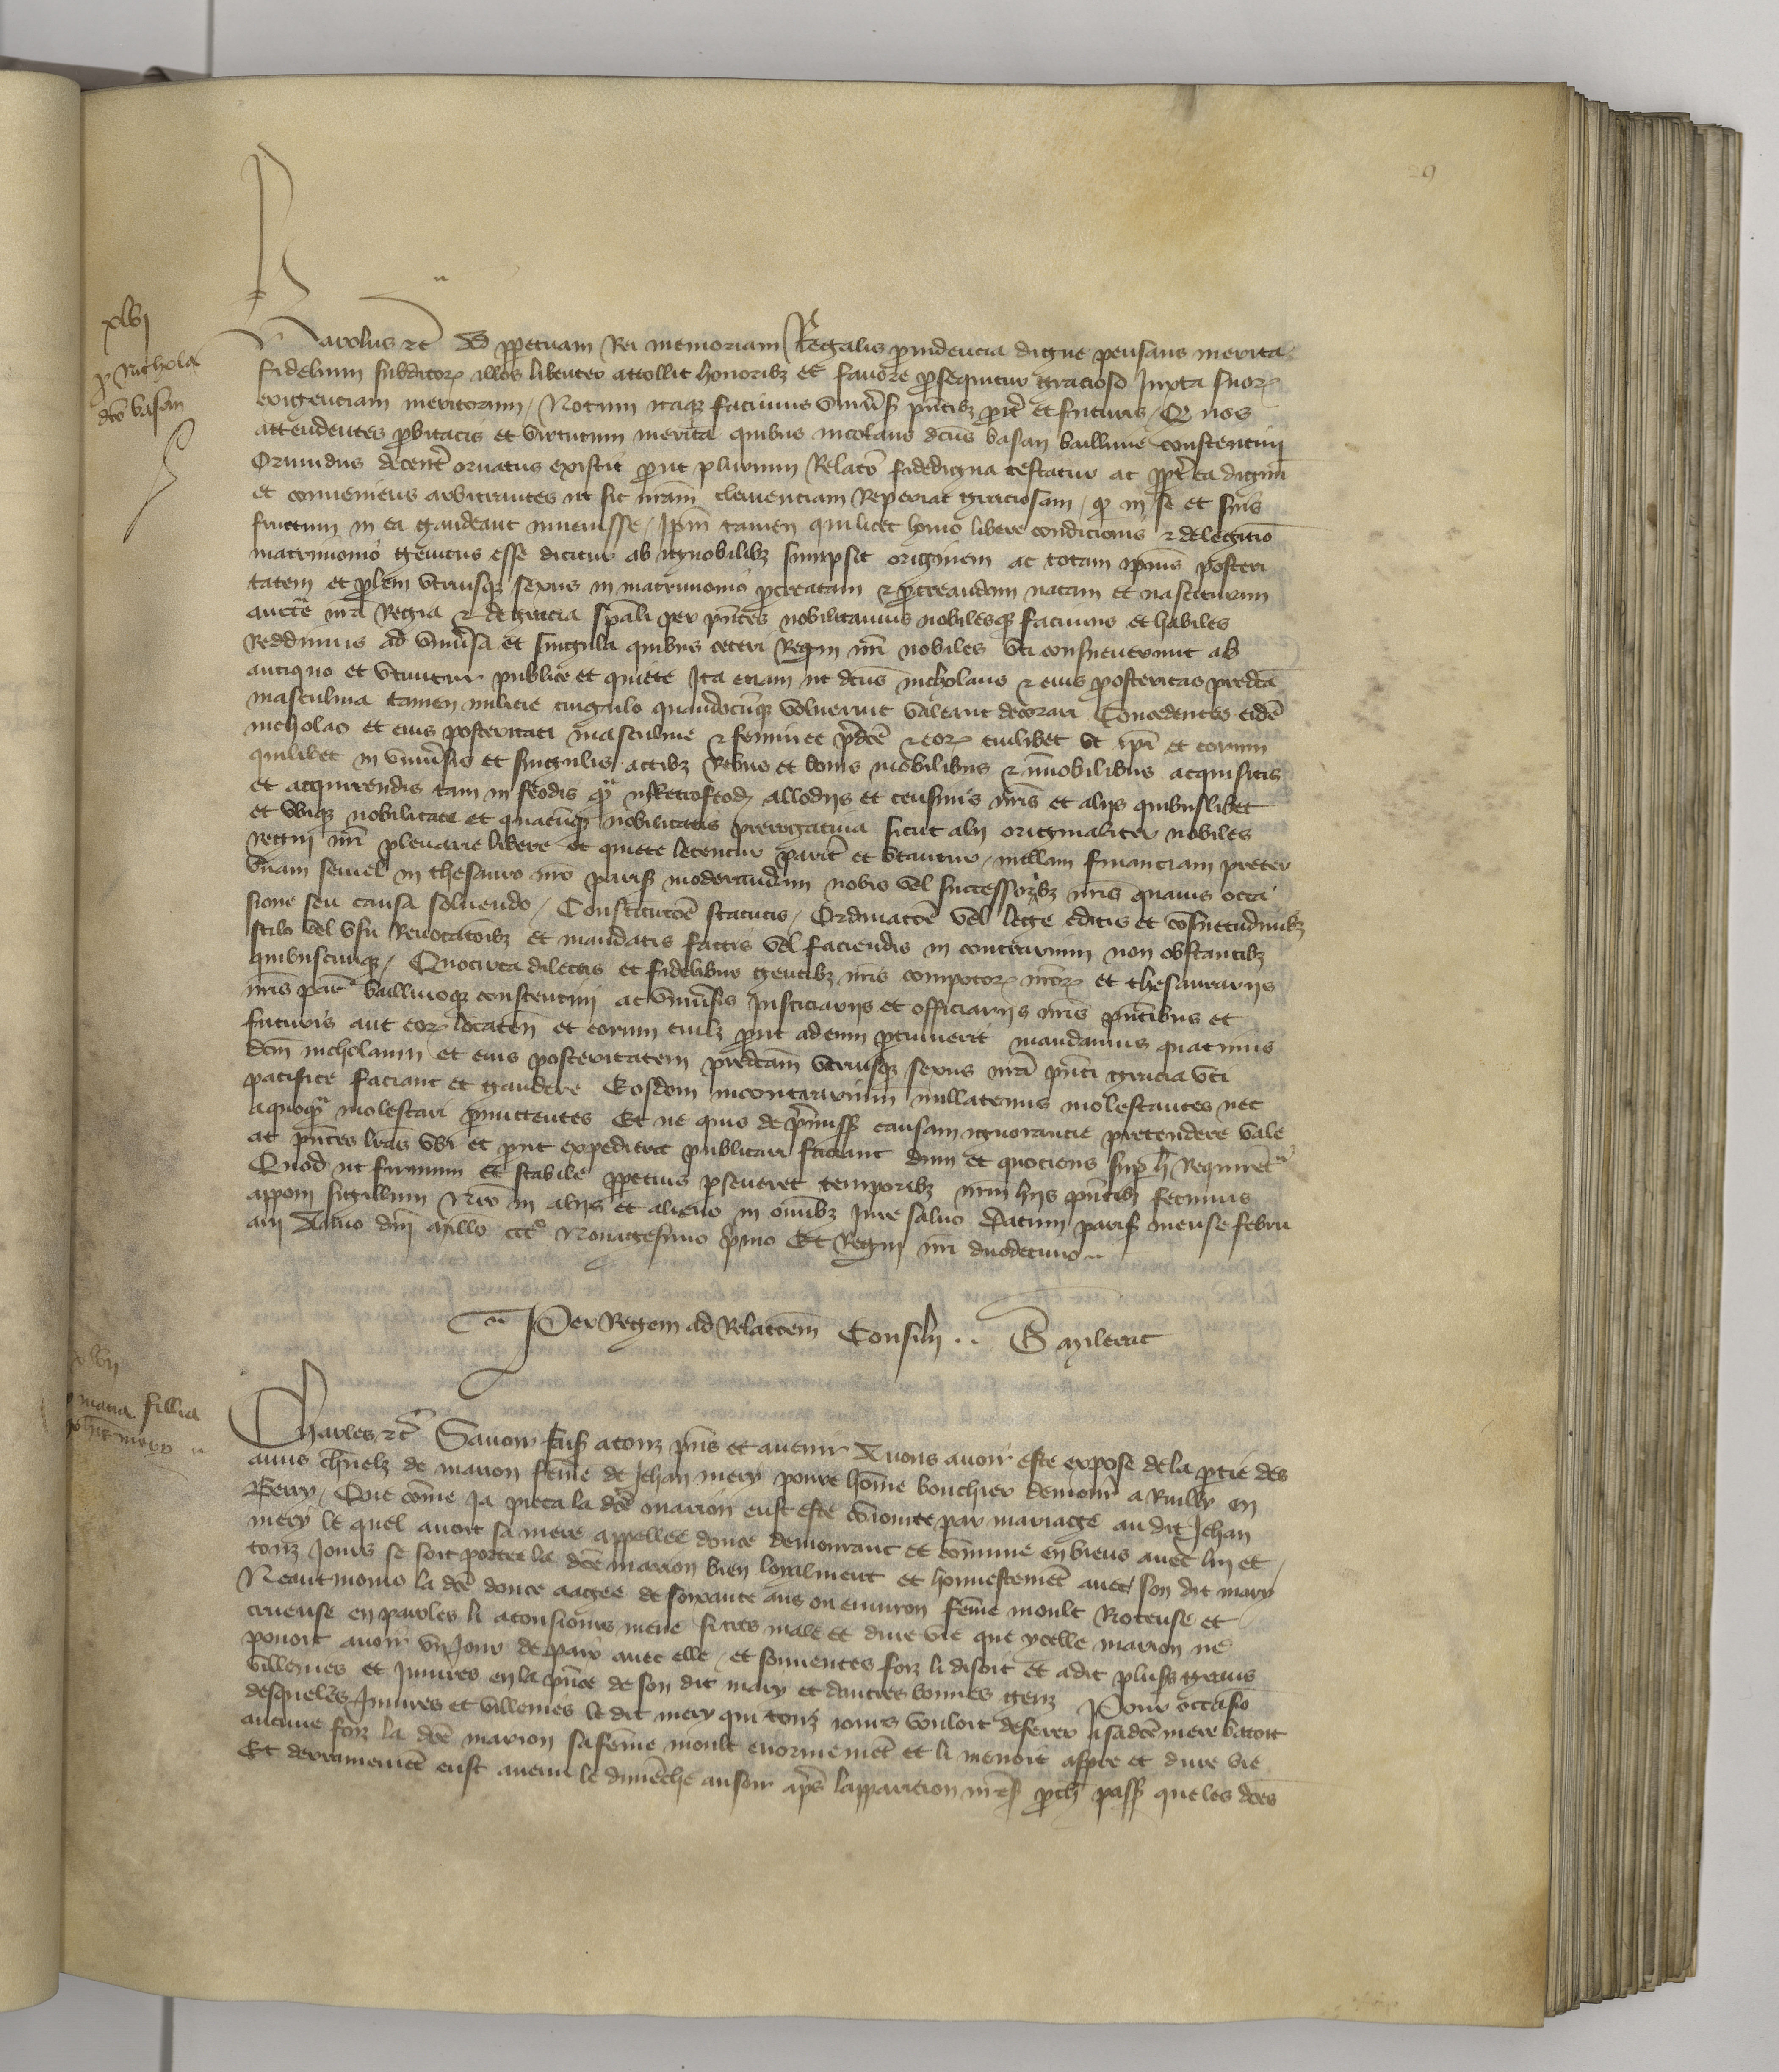 29
xlvi
p Nichola
dco basan
Karolus etc Ad ppetuam Rei memoriam Regalis prudencia digne pensans merita
fidelium subditor illos libenter attollit honoribz et favore prosequitur gracioso Juxta suor
exigenciam meritorum / Notum itaque facimus univsis pntibz pit et futuris / Q nos
attendentes probitatis et virtutum merita quibus nicolaus dcus basan baillivie constentini
Oriundus decent ornatus existit prout plurium Relato fidedigna testatur ac ppt ea dignu
et conveniens arbitrantes ut sic nram clemenciam Reperiat graciosam / qd in se et suis
fructum in ea gaudeant invenisse / Ipm tamen qui licet homo libere condicionis et de legitio
matrimonio genitus esse dicitur ab ignobilibz sumpsit originem ac totam ipius posteri
tatem et plem utriusque sexus in matrimonio pcreatam et procreandam natam et nascituram
aucte nra Regia et de gracia spali per pntes nobilitamus nobilesque facimus et habiles
Reddimus ad univsa et singula quibus ceteri Regni nri nobiles uti consueverunt ab
antiquo et utuntur publice et quiete Ita etiam ut dcus nicholaus et eius posteritas predca
masculina tamen milicie cingulo quandocunque voluerint valeant decorari Concedentes eide
nicholao et eius posteritati masculine et feminee pdce et eor cuilibet ut ipi et eorum
quilibet in univsis et singulis actibz Rebus et bonis mobilibus et immobilibus acquisitis
et acquirendis tam in feodis qua in Retrofeod allodiis et censivis nris et aliis quibuslibet
et ubique nobilitate et quacunque nobilitatis prerogativa sicut alii originaliter nobiles
regni nri plenarie libere et quiete letentur parit et utantur / nullam financiam preter
unam semel in thesauro nro paris moderandam nobis vel successoribz nris quavis occa
sione seu causa solvendo / Constitucoe statutis / Ordinacoe vel lege editis et cosuetudinibz
stilo vel usu Revocatoibz et mandatis factis vel faciendis in contrarium non obstantibz
quibuscunque / Quocirca dilectis et fidelibus gentibz nris compotor nror et thesaurariis
nris par baillivoque constentini ac univsis Justiciariis et officiariis nris pntibus et
futuris aut eor locaten et eorum cuilz prout ad eum ptinuerit mandamus quatinus
dcm nicholaum et eius posteritatem predcam utriusque sexus nra pnti gracia uti
pacifice faciant et gaudere Eosdem in contrarium nullatenus molestantes nec
a quoqua molestari pmittentes Et ne quis de pmiss causam ignorancie pretendere vale
at pntes lras ubi et prout expedierit publicari faciant dum et quociens sup h Requiret
Quod ut firmum et stabile ppetuis pseveret temporibz nrm hiis pntibz fecimus
apponi sigillum Nro in aliis et alieno in omibz Jure salvo Datum paris mense febru
arii Anno dni millo ccc Nonagesimo pmo Et Regni nri duodecimo
Per Regem ad Relacoem Consilii .. G Milerat
xlvii
maria fillia
Charles etc Savoir fais a touz pns et avenir A nous avoir este expose de la ptie des
amis charnelz de marion feme de Jehan mery povre home bouchier demour a Ruilly en
Berry / Que come Ja pieca la dce marion eust este conioincte par mariage au dit Jehan
mery le quel avoit sa mere appellee douce demourant et comune en biens avec lui et
touz Jours se soit portee la dce marion bien loyalment et honnestemet avec son dit mary
Neantmoins la dce douce aagee de soixante ans ou environ feme moult Rioteuse et
crueuse en paroles li a tousiours mene si tres male et dure vie que ycelle marion ne
povoit avoir un Jour de paix avec elle / et souventes foiz li disoit et a dit pluss grans
villenies et Jniures en la pnce de son dit mary et dautres bonnes genz Pour occasio
desqueles Jniures et villenies le dit mery qui touz iours vouloit deferer a sa dce mere batoit
aucune foiz la dce marion sa feme moult enormemet et li menoit aspre et dure vie
Et derrainemet eust avenu le dimeche au soir aps lapparicion nre s pch pass que les dces